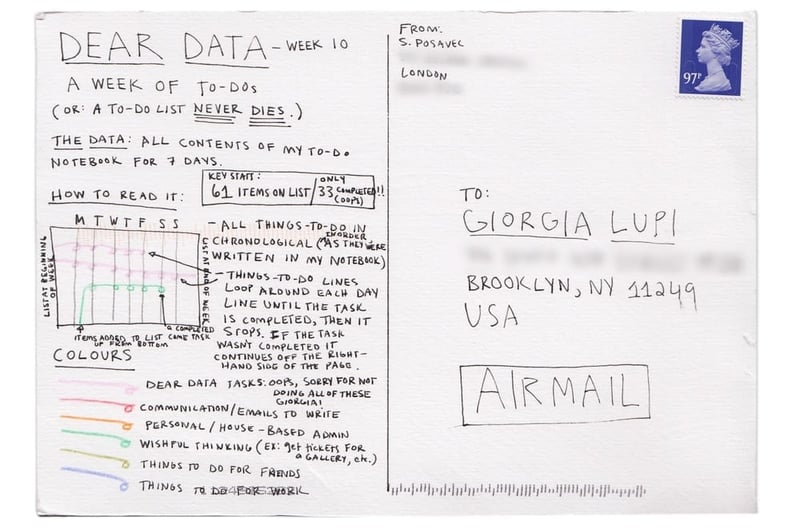 DEAR DATA - WEEK 10
A WEEK OF TO-DOS
(OR: A TO-DO LIST NEVER DIES.)
THE DATA: ALL CONTENTS OF MY TO-DO
NOTEBOOK FOR 7 DAYS.
KEY STATS:
61 ITEMS ON LIST / ONLY 33 COMPLETED!! (OOPS)
HOW TO READ IT:
M T W T F S S
LIST AT BEGINNING OF WEEK
LIST AT END OF WEEK
ITEMS ADDED TO LIST COME UP FROM BOTTOM
A COMPLETED TASK
- ALL THINGS-TO-DO IN
CHRONOLOGICAL ORDER (AS THEY WERE
WRITTEN IN MY NOTEBOOK)
- THINGS-TO-DO LINES
LOOP AROUND EACH DAY
LINE UNTIL THE TASK
IS COMPLETED, THEN IT
STOPS. IF THE TASK
WASN'T COMPLETED IT
CONTINUES OFF THE RIGHT-
HAND SIDE OF THE PAGE.
COLOURS
DEAR DATA TASKS: OOPS, SORRY FOR NOT
DOING ALL OF THESE
GIORGIA!
COMMUNICATION/EMAILS TO WRITE
PERSONAL/HOUSE-BASED ADMIN
WISHFUL THINKING (EX: get TICKETS FOR
a GALLERY, etc.)
THINGS TO DO FOR FRIENDS
THINGS TO DO FOR WORK
FROM:
S. POSAVEC
LONDON
97P
TO:
GIORGIA LUPI
BROOKLYN, NY 11249
USA
AIRMAIL